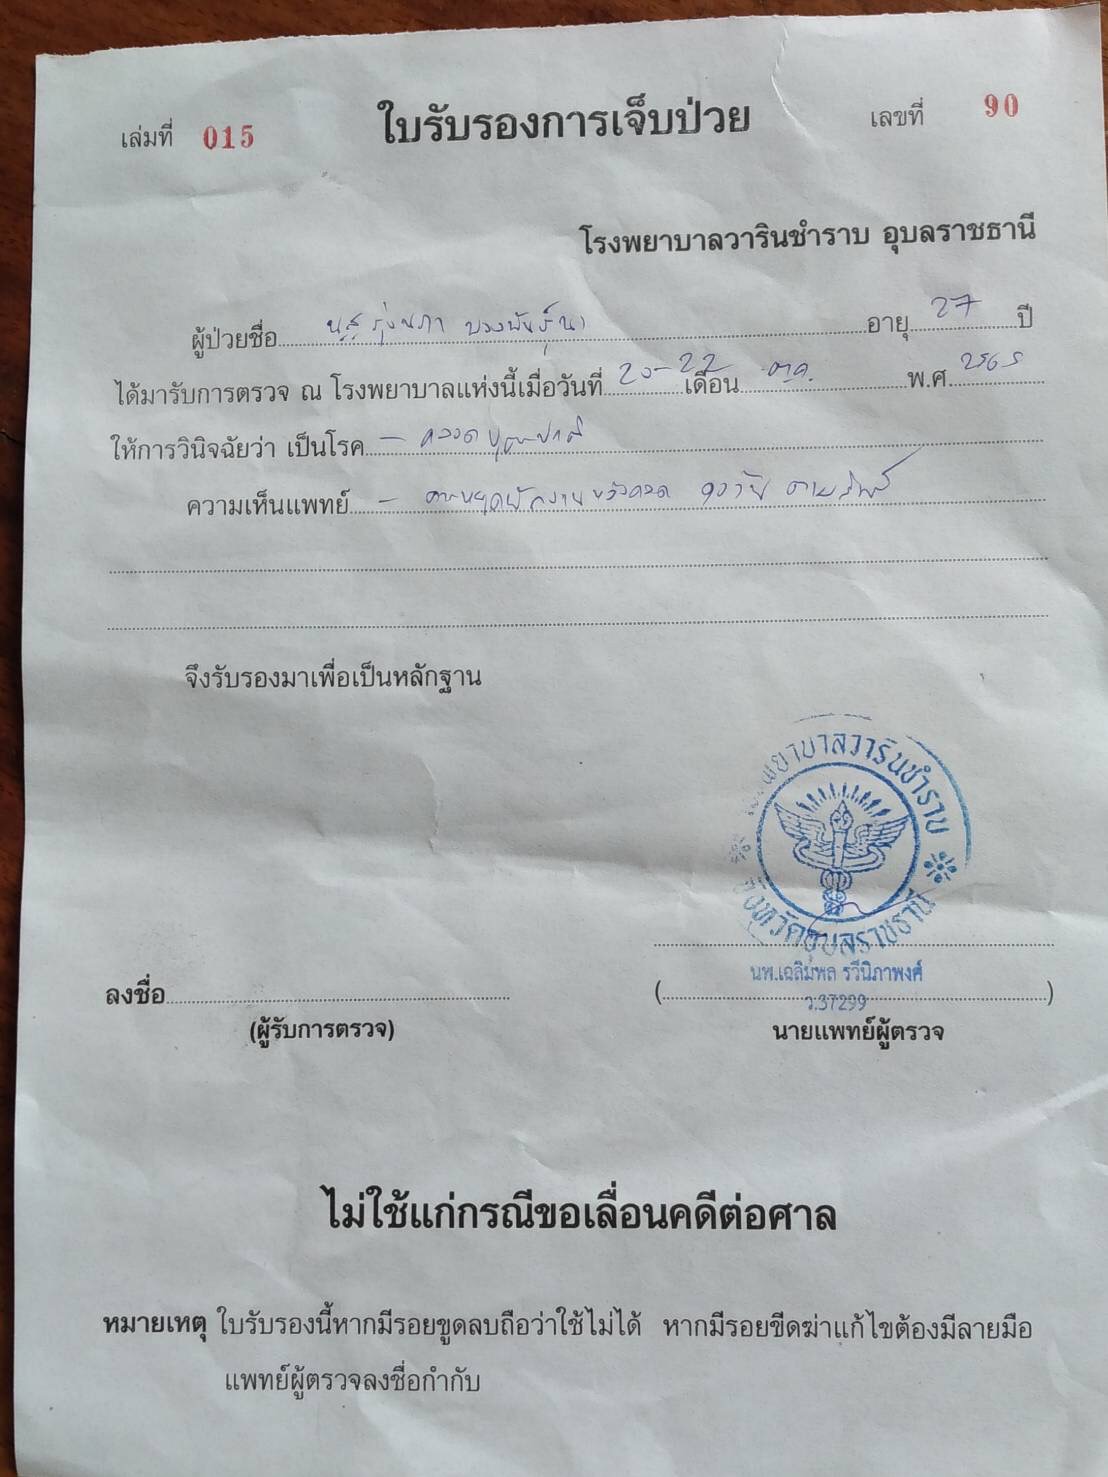 เล่มที่ 015 ใบรับรองการเจ็บป่วย เลขที่ 90
โรงพยาบาลวารินชำราบ อุบลราชธานี
ผู้ป่วยชื่อ อายุ 27 ปี
ได้มารับการตรวจ ณ โรงพยาบาลแห่งนี้เมื่อวันที่ 20-22 เดือน ต.ค. พ.ศ. 2565
ให้การวินิจฉัยว่า เป็นโรค - คลอดบุตรปกติ
ความเห็นแพทย์ - หลังคลอด
จึงรับรองมาเพื่อเป็นหลักฐาน
โรงพยาบาลวารินชำราบ
จังหวัดอุบลราชธานี
นพ.เฉลิมพล รวีนิภาพงศ์
ว.37299
ลงชื่อ ( )
(ผู้รับการตรวจ) นายแพทย์ผู้ตรวจ
ไม่ใช้แก่กรณีขอเลื่อนคดีต่อศาล
หมายเหตุ ใบรับรองนี้หากมีรอยขูดลบถือว่าใช้ไม่ได้ หากมีรอยขีดฆ่าแก้ไขต้องมีลายมือ
แพทย์ผู้ตรวจลงชื่อกำกับ